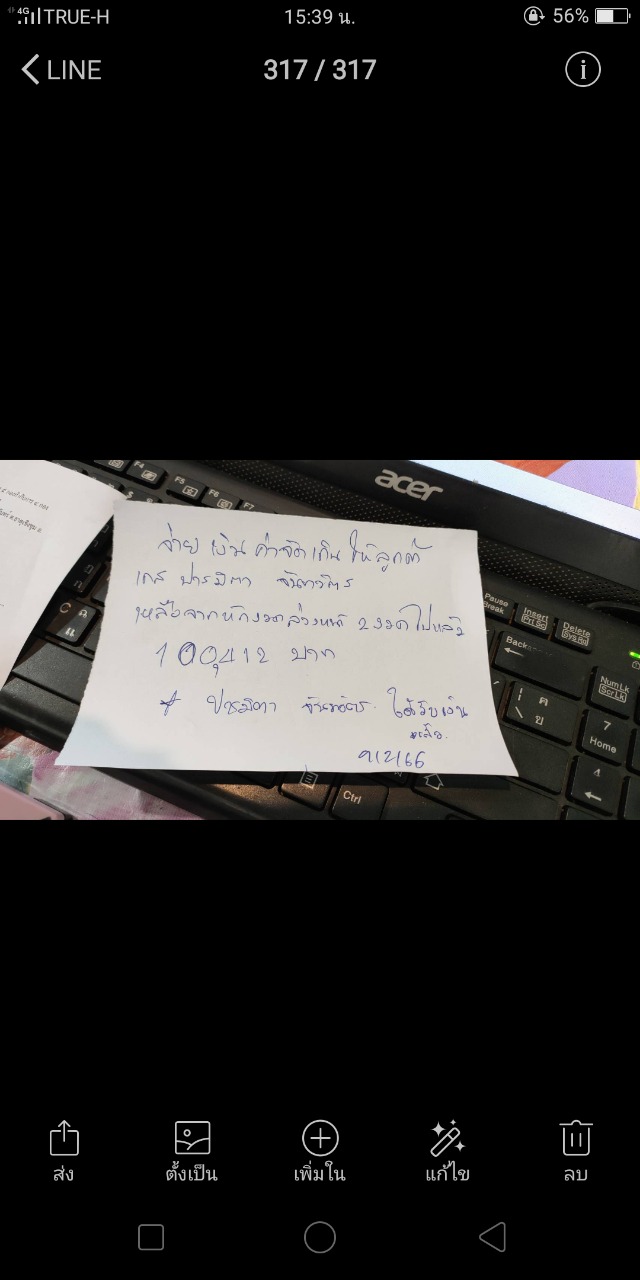 4G TRUE-H 15:39 น. 56%
LINE 317 / 317
acer
F4 F5 F6 F7
จ่าย เงิน ค่าจัด เกิน ให้ลูกค้า
เคส ปารมิตา จันทวัตร
เหลือจากหักงวดล่วงหน้า 2 งวด ไปแล้ว
100,412 บาท
ปารมิตา ได้รับเงิน
แล้ว.
9/2/66
Pause
Break
Insert
Prt Sc
Delete
Sys Rq
Back
NumLk
ScrLk
7
Home
4
Ctrl
ส่ง ตั้งเป็น เพิ่มใน แก้ไข ลบ